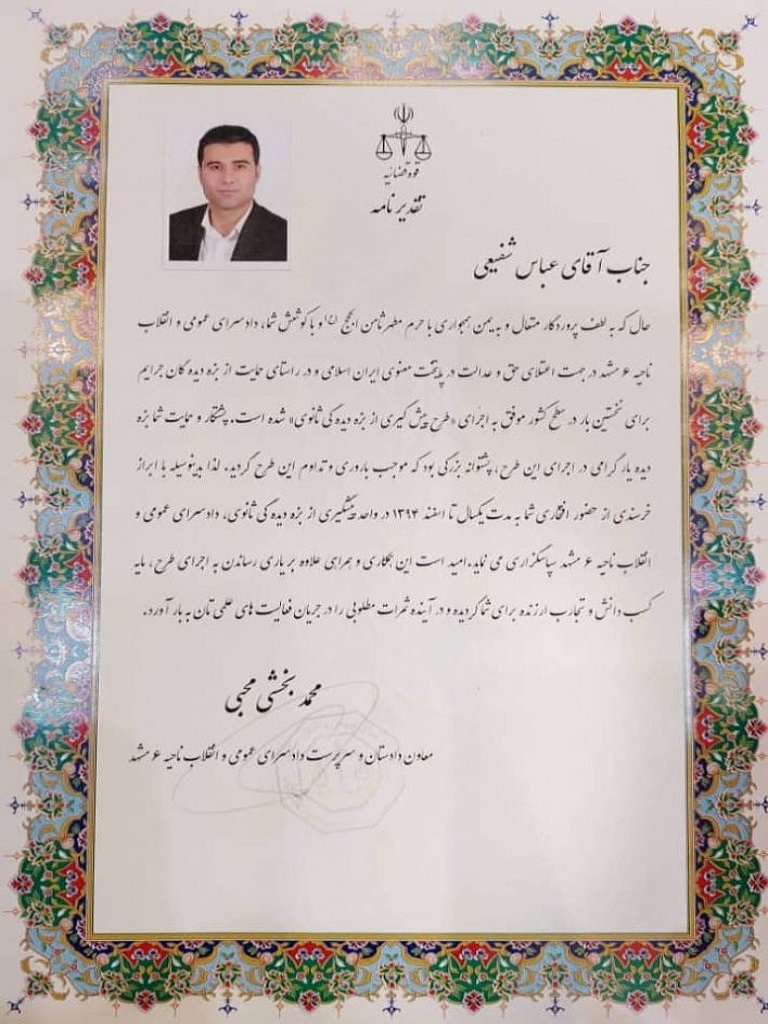 قوه قضائیه
تقدیر نامه
جناب آقای عباس شفیعی
حال که به لطف پروردگار متعال و به یمن همجواری با حرم مطهر ثامن الحجج (ع) و با کوشش شما، دادسرای عمومی و انقلاب
ناحیه ۶ مشهد در جهت اعتلای حق و عدالت در پایتخت معنوی ایران اسلامی و در راستای حمایت از بزه دیده گان جرایم
برای نخستین بار در سطح کشور موفق به اجرای «طرح پیش گیری از بزه دیده گی ثانوی» شده است. پشتکار و حمایت شما بزه
دیده یار گرامی در اجرای این طرح، پشتوانه بزرگی بود که موجب باروری و تداوم این طرح گردید. لذا بدینوسیله با ابراز
خرسندی از حضور افتخاری شما به مدت یکسال تا اسفند ۱۳۹۴ در واحد پیشگیری از بزه دیده گی ثانوی، دادسرای عمومی و
انقلاب ناحیه ۶ مشهد سپاسگزاری می نماید. امید است این همکاری و همراهی علاوه بر یاری رساندن به اجرای طرح، مایه
کسب دانش و تجارب ارزنده برای شما گردیده و در آینده ثمرات مطلوبی را در جریان فعالیت های علمی تان به بار آورد.
محمد بخشی محبی
معاون دادستان و سرپرست دادسرای عمومی و انقلاب ناحیه ۶ مشهد